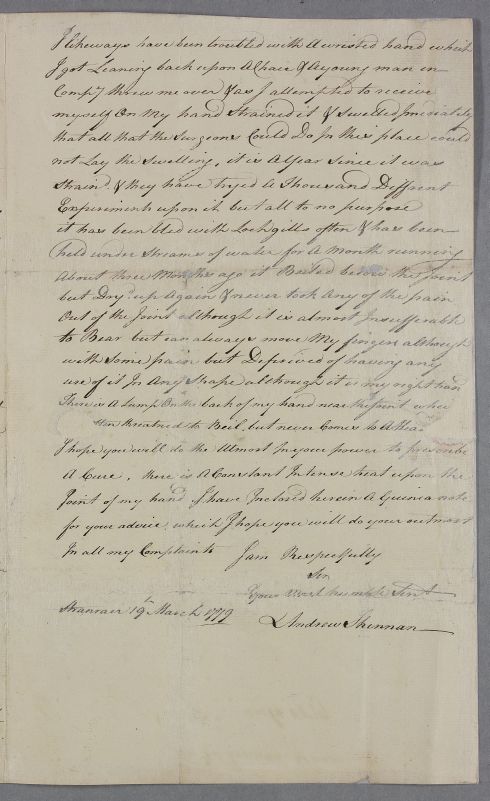 I likeways have been troubled with A wristed hand which
I got Leaning back upon A Chair & A young man in
Compy threw me over & as I attempted to receive
myself On My hand Strained it & Swelled Imediatly
that all that the Surgeons Could Do In this place could
not Lay the Swelling, it is A Year Since it was
Straind & they have tryed A Thousand Diffrent
Experiments upon it but all to no purpose
it has been bled with Loch gills often & has been
held under Streams of water for A Month running
About three Months ago it Beiled before the Joint
but Dry'd up Again & never took Any of the pain
Out of the Joint although it is almost Insufferable
to Bear but can always move My fingers although
with Some pain but Deprived of having any
use of it In Any Shape although it is my right hand
There is A Lump On the back of my hand near the Joint
threatned to Beil, but never Comes to A
I hope you will do the Utmost In your power to prescribe
A Cure, there is A Constant Intense heat upon the
Joint of my hand I have Inclosed herein A Guinea note
for your advice which I hope you will do your outmost
In all my Complaints I am Respectfully
Sir
Your most humble Servt
Stranraer 19th March 1779 Andrew Shennan